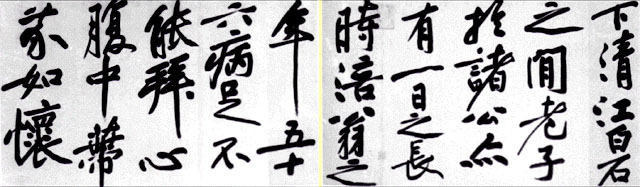 下清江白石
之間老子
於諸公亦
有一日之長
時涪翁之
年五十
六病足不
能拜心
腹中蔕
芥如懷